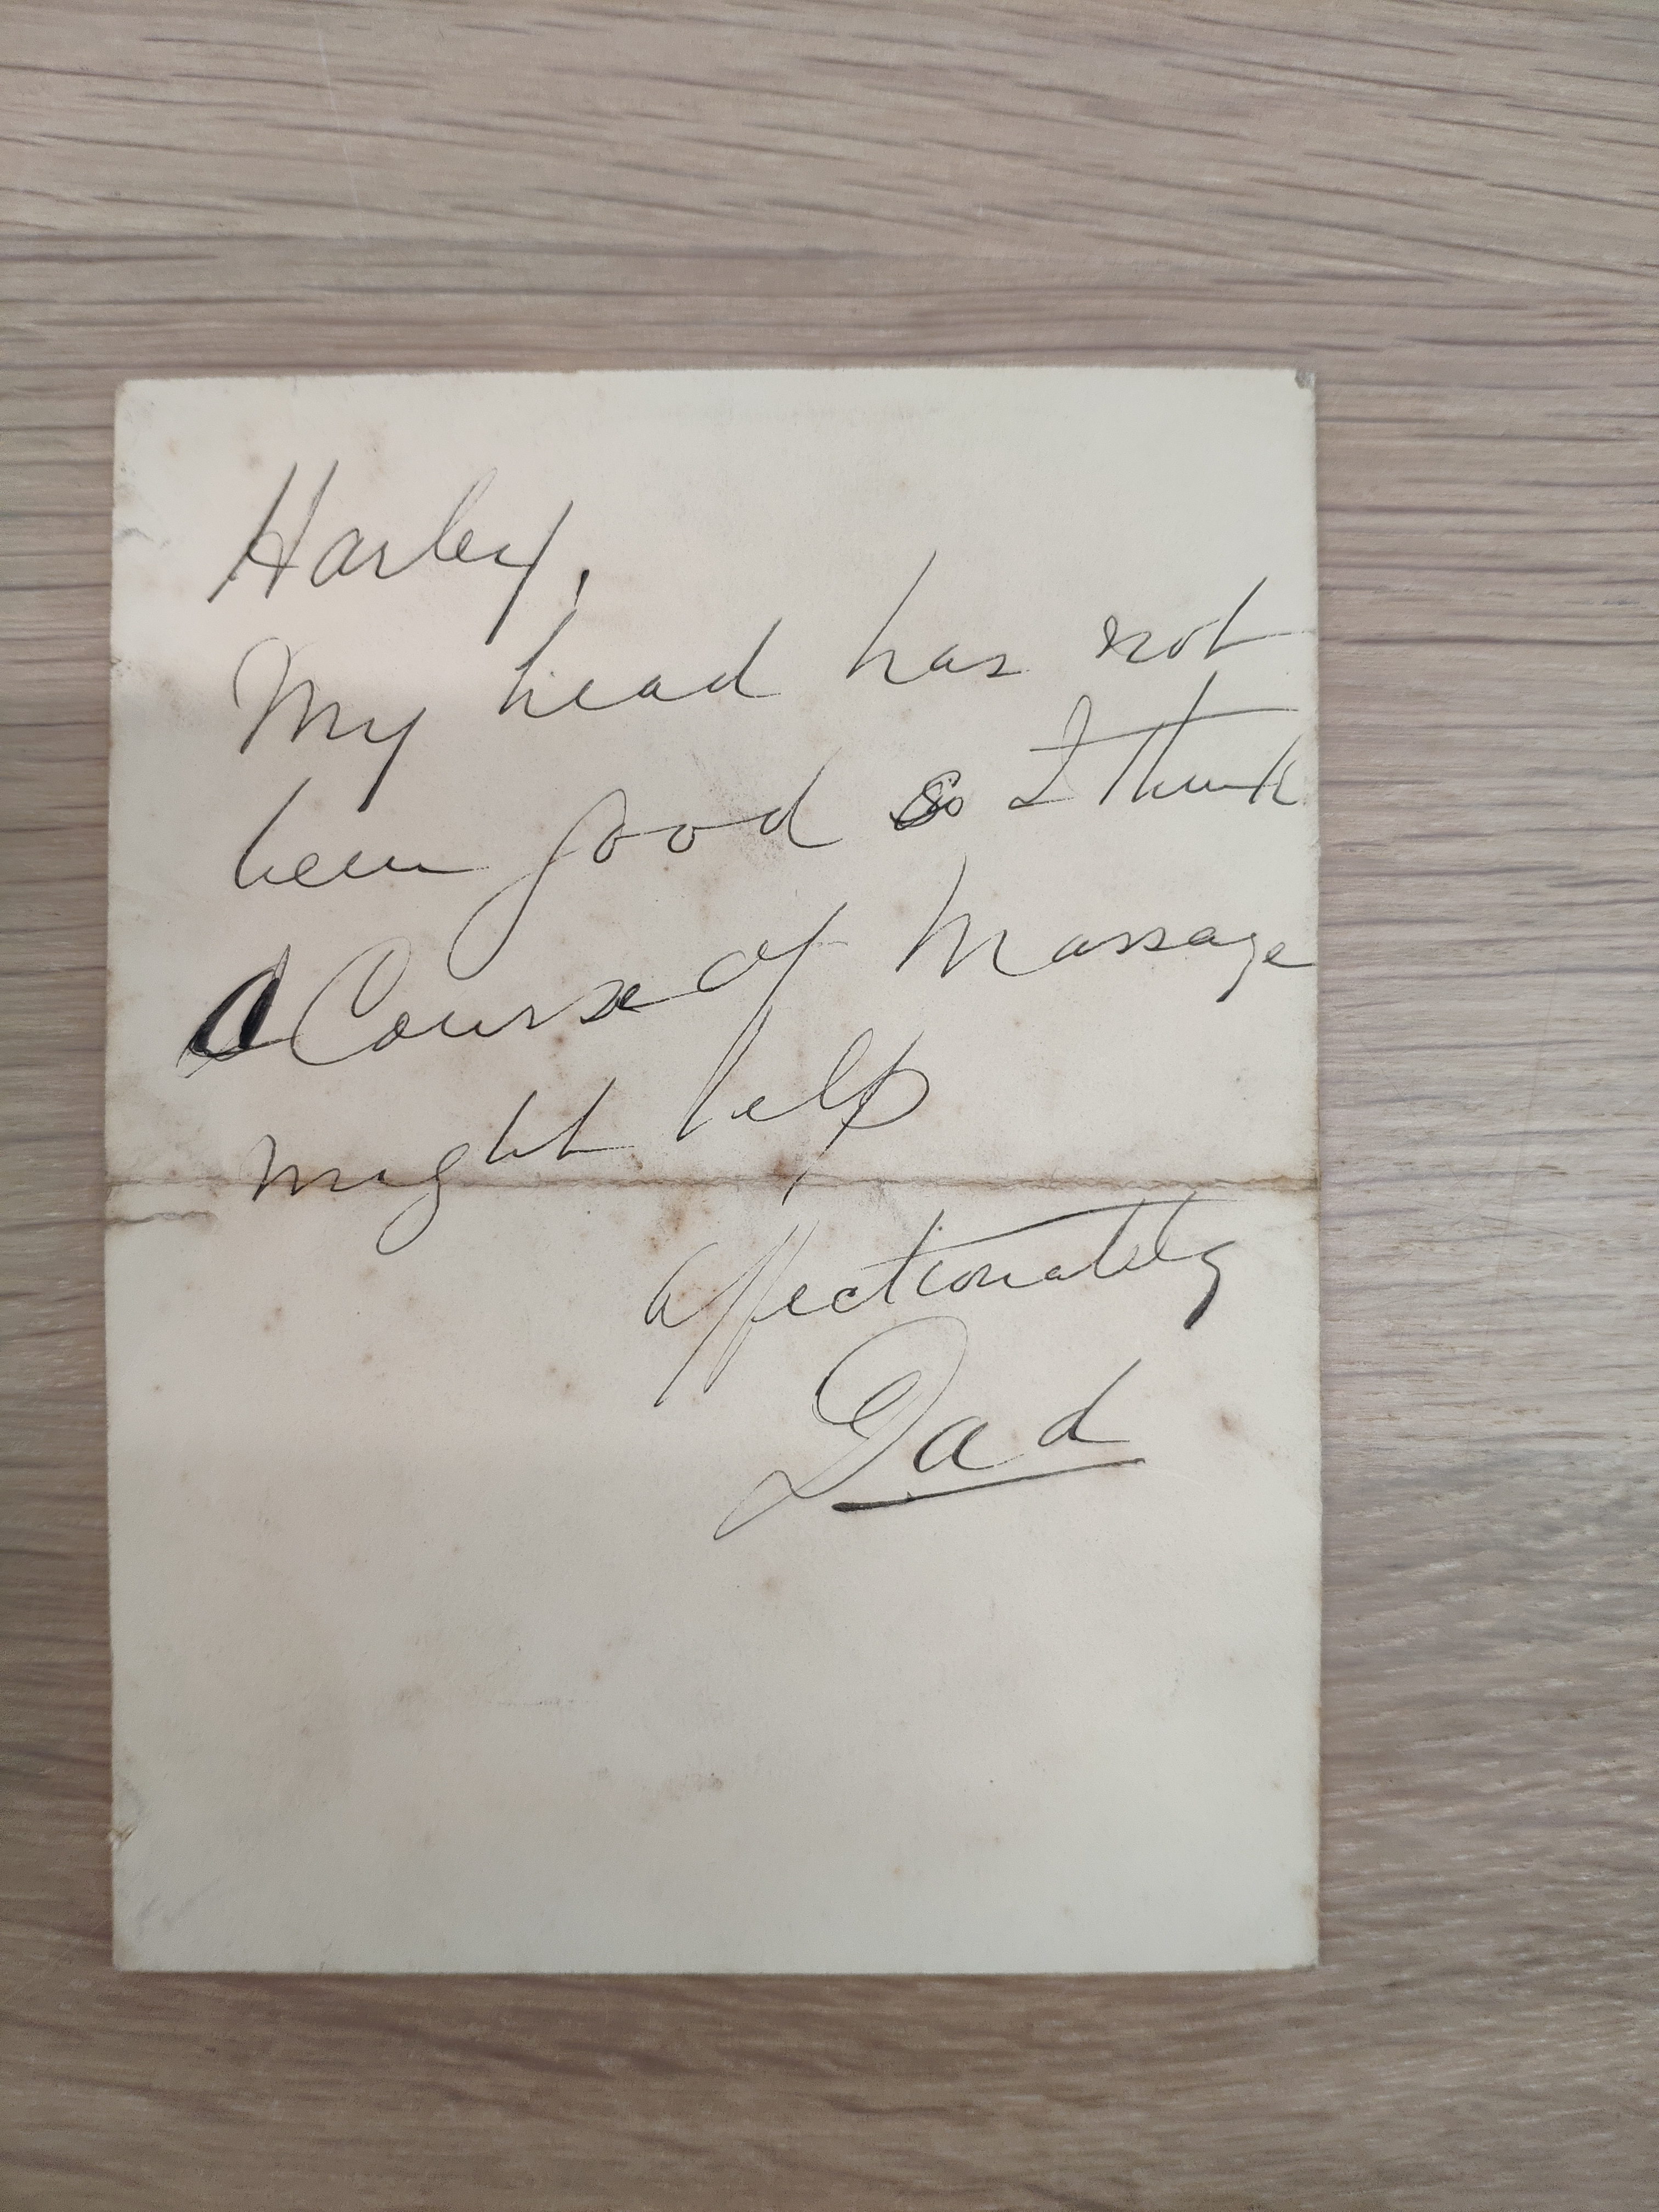 Harley,
My head has not
been good so I think
a Course of Massage
might help
affectionately
Dad